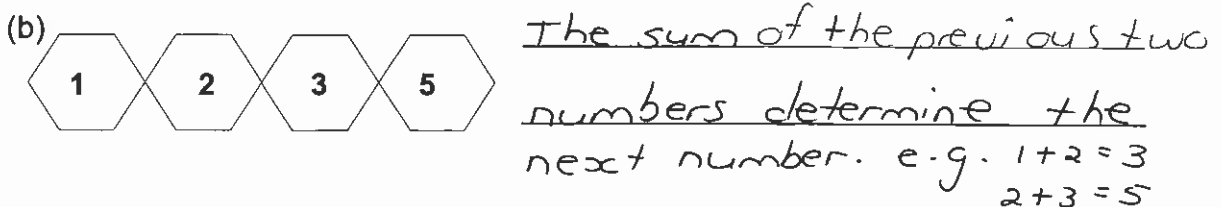 (b) 1 2 3 5
The sum of the previous two
numbers determine the
next number. e.g. 1+2=3
2+3=5